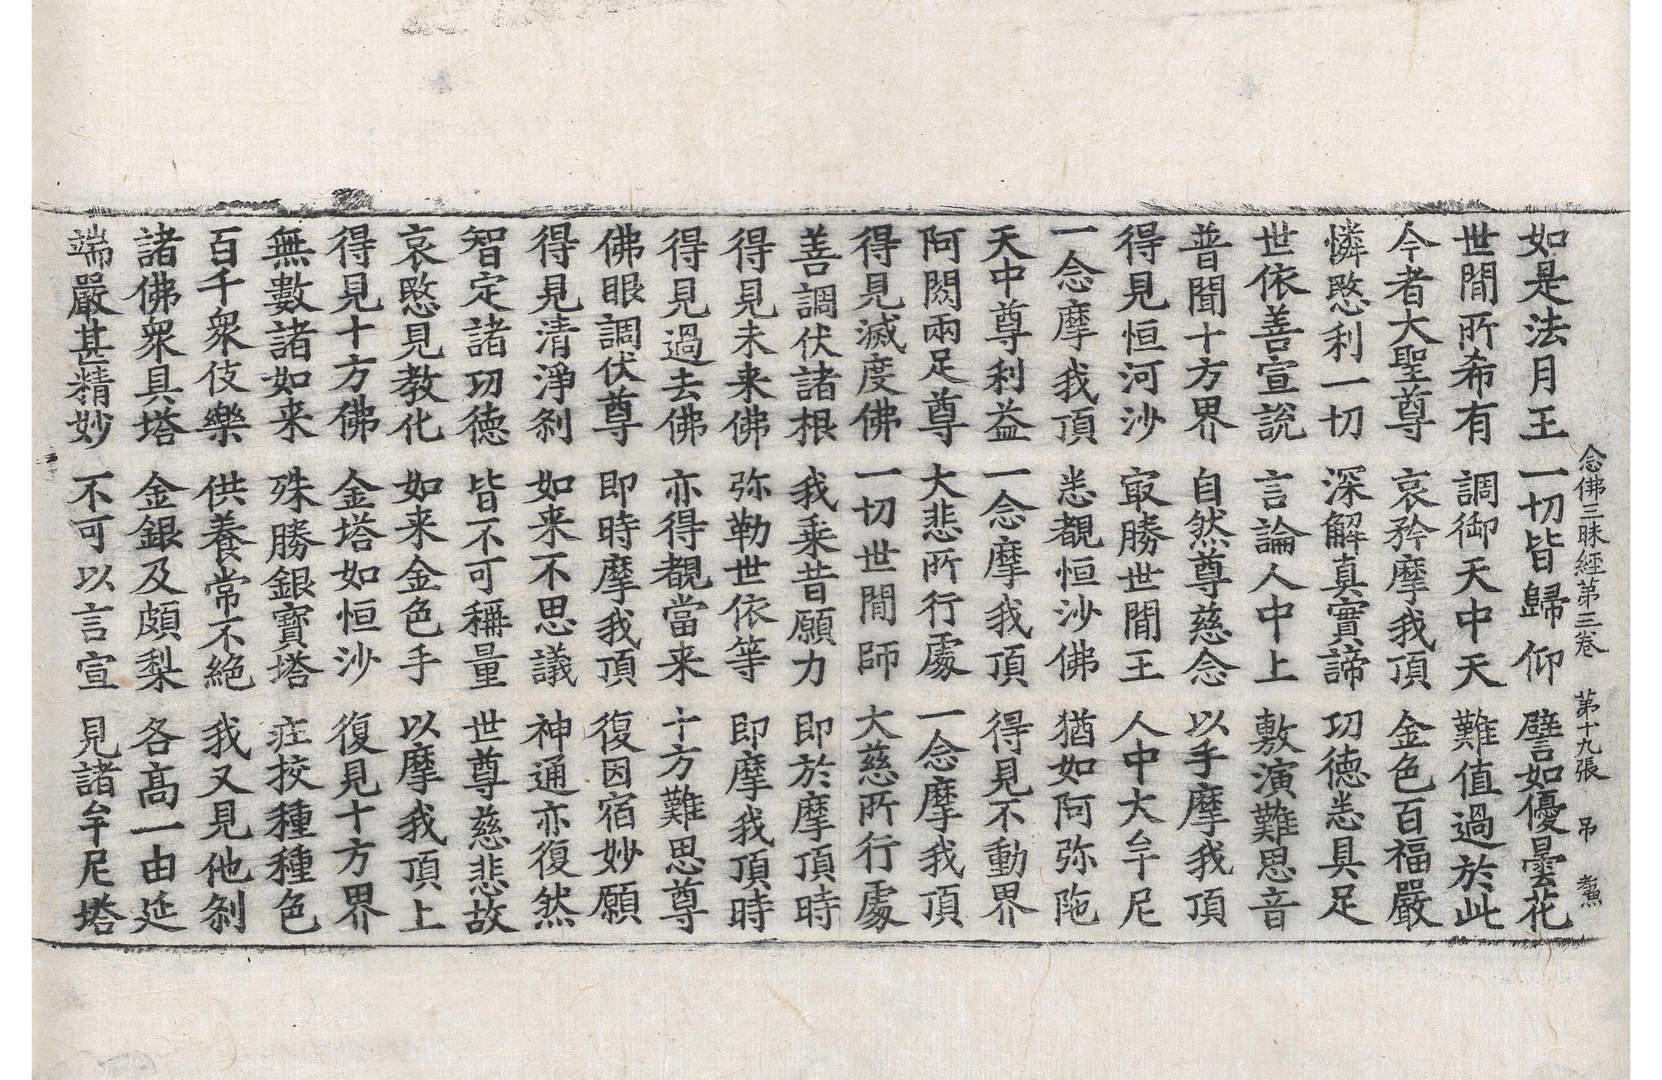 念佛三昧經第三卷 第十九張 吊
如是法月王 一切皆歸仰 譬如優曇花
世間所希有 調御天中天 難值過於此
今者大聖尊 哀矜摩我頂 金色百福嚴
憐愍利一切 深解真實諦 功德悉具足
世依善宣說 言論人中上 敷演難思音
普聞十方界 自然尊慈念 以手摩我頂
得見恒河沙 冣勝世間王 人中大牟尼
一念摩我頂 悉覩恒沙佛 猶如阿弥陁
天中尊利益 一念摩我頂 得見不動界
阿閦兩足尊 大悲所行處 一念摩我頂
得見滅度佛 一切世間師 大慈所行處
善調伏諸根 我乘昔願力 即於摩頂時
得見未来佛 弥勒世依等 即摩我頂時
得見過去佛 亦得覩當来 十方難思尊
佛眼調伏尊 即時摩我頂 復因宿妙願
得見清淨刹 如来不思議 神通亦復然
智定諸功德 皆不可稱量 世尊慈悲故
哀愍見教化 如来金色手 以摩我頂上
得見十方佛 金塔如恒沙 復見十方界
無數諸如来 殊勝銀寶塔 莊挍種種色
百千衆伎樂 供養常不絶 我又見他刹
諸佛衆具塔 金銀及頗梨 各高一由延
端嚴甚精妙 不可以言宣 見諸牟尼塔